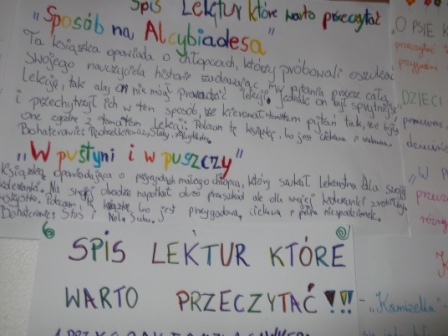 Spis Lektur które warto przeczytać
"Sposób na Alcybiadesa"
Ta książka opowiada o chłopcach, którzy próbowali oszukać
swojego nauczyciela historii zadawając mu pytania przez całą
lekcję, tak aby on nie mógł prowadzić lekcji. Jednak on był sprytniejszy
i przechytrzył ich w ten sposób, że kierował tematem pytań tak, że były
one zgodne z tematem lekcji. Polecam tę książkę, bo jest ciekawa i
Bohaterowie:
"W pustyni i w puszczy"
Książka opowiadająca o przygodach małego chłopca, który szukał lekarstwa dla swojej
koleżanki. Na swojej drodze napotkał dużo przeszkód ale dla swojej koleżanki zrobiłby
wszystko. Polecam książkę bo jest przygodowa, ciekawa i pełna niespodzianek.
Bohaterowie: Staś i Nel.
SPIS LEKTUR KTÓRE
WARTO PRZECZYTAĆ!!!
O PSIE K
przeczytać
DZIECI
"W P
"Kamizelka"